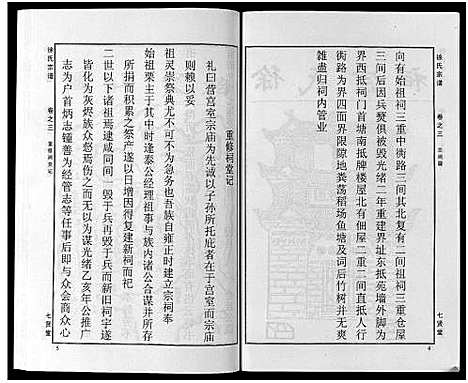 徐氏宗谱
卷之三
七贤堂
4
向有始祖祠三重中衡路二间其北复有二间祖祠三重仓屋
三间后因兵燹俱被毁光绪二年重建界址东抵苑墙外脚为
界西抵祠门首塘南抵牌楼屋北有衙路二间直抵人行
衙路为界四面界限隙地粪荡稻场鱼塘及祠后竹树并无爽
杂盎归祠内管业
重修祠堂记
礼曰营宫室宗庙为先诚以子孙所托庇者在于宫室而宗庙
则赖以妥
祖灵崇祭典尤不可不为急务也吾族自雍正时建立宗祠奉
始祖栗主于其中时逢泰公经理祖事与族内诸公合谋并所存
所捐而积累之祭产遂以日增因得复建新祠而祀
二世以下诸祖焉逮咸同间一毁于兵再毁于兵而新旧祠宇遂
皆化为灰烬族众怒焉伤之而无以为谋光绪乙亥年公推广
志为户首炳志锺善为经管志等任事后即与众会商众心
徐氏宗谱
卷之三
重修祠堂记
七贤堂
5